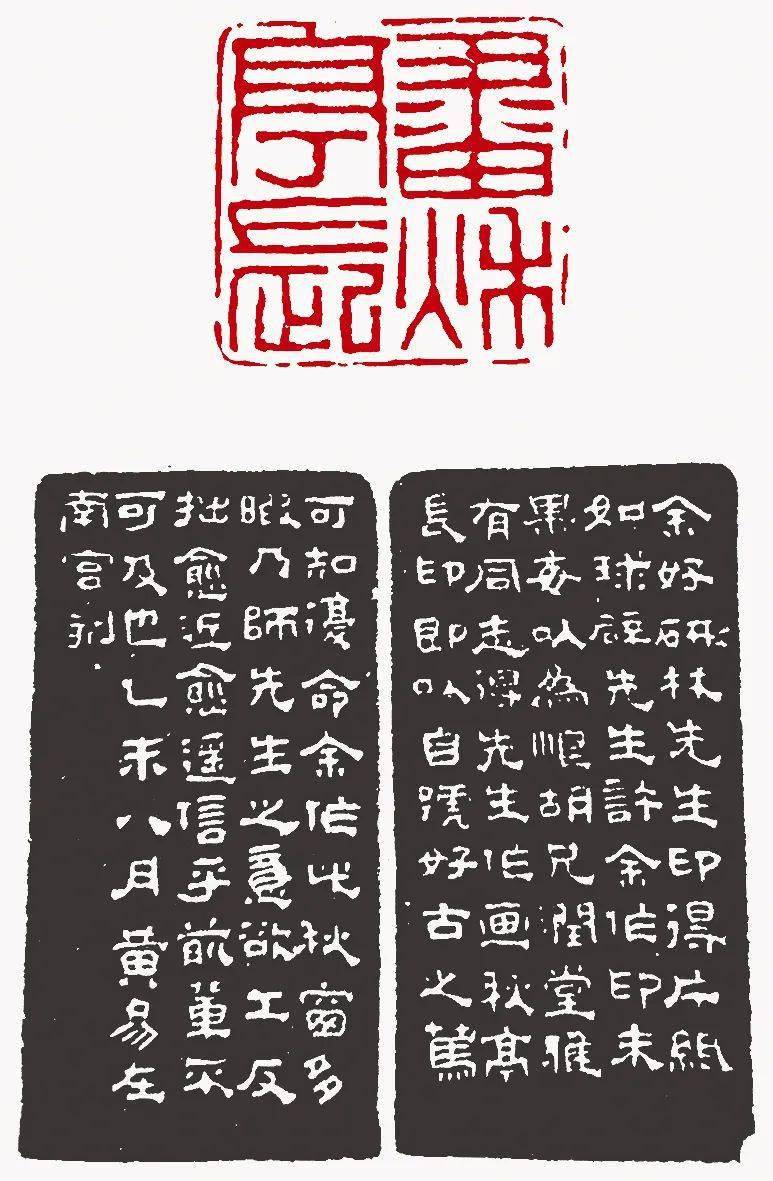 畫秋
亭長
余好研林先生印得片紙
如球璧先生許余作印未
果每以為恨胡兄潤堂雅
有同志得先生作画秋亭
長印即以自號好古之篤
可知復命余作此秋窗多
暇乃師先生之意欲工反
拙愈近愈遥信乎前輩不
可及也乙未八月黃易在
南宮